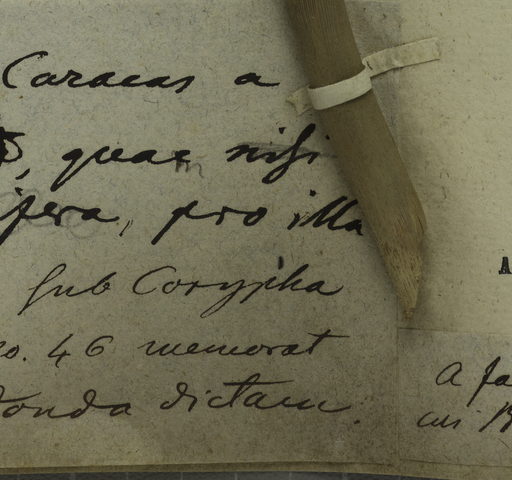 Caracas a
quae nisi
fera, pro illa
sub Corypha
o. 46 memorat
tonda dictam.
A
a fa